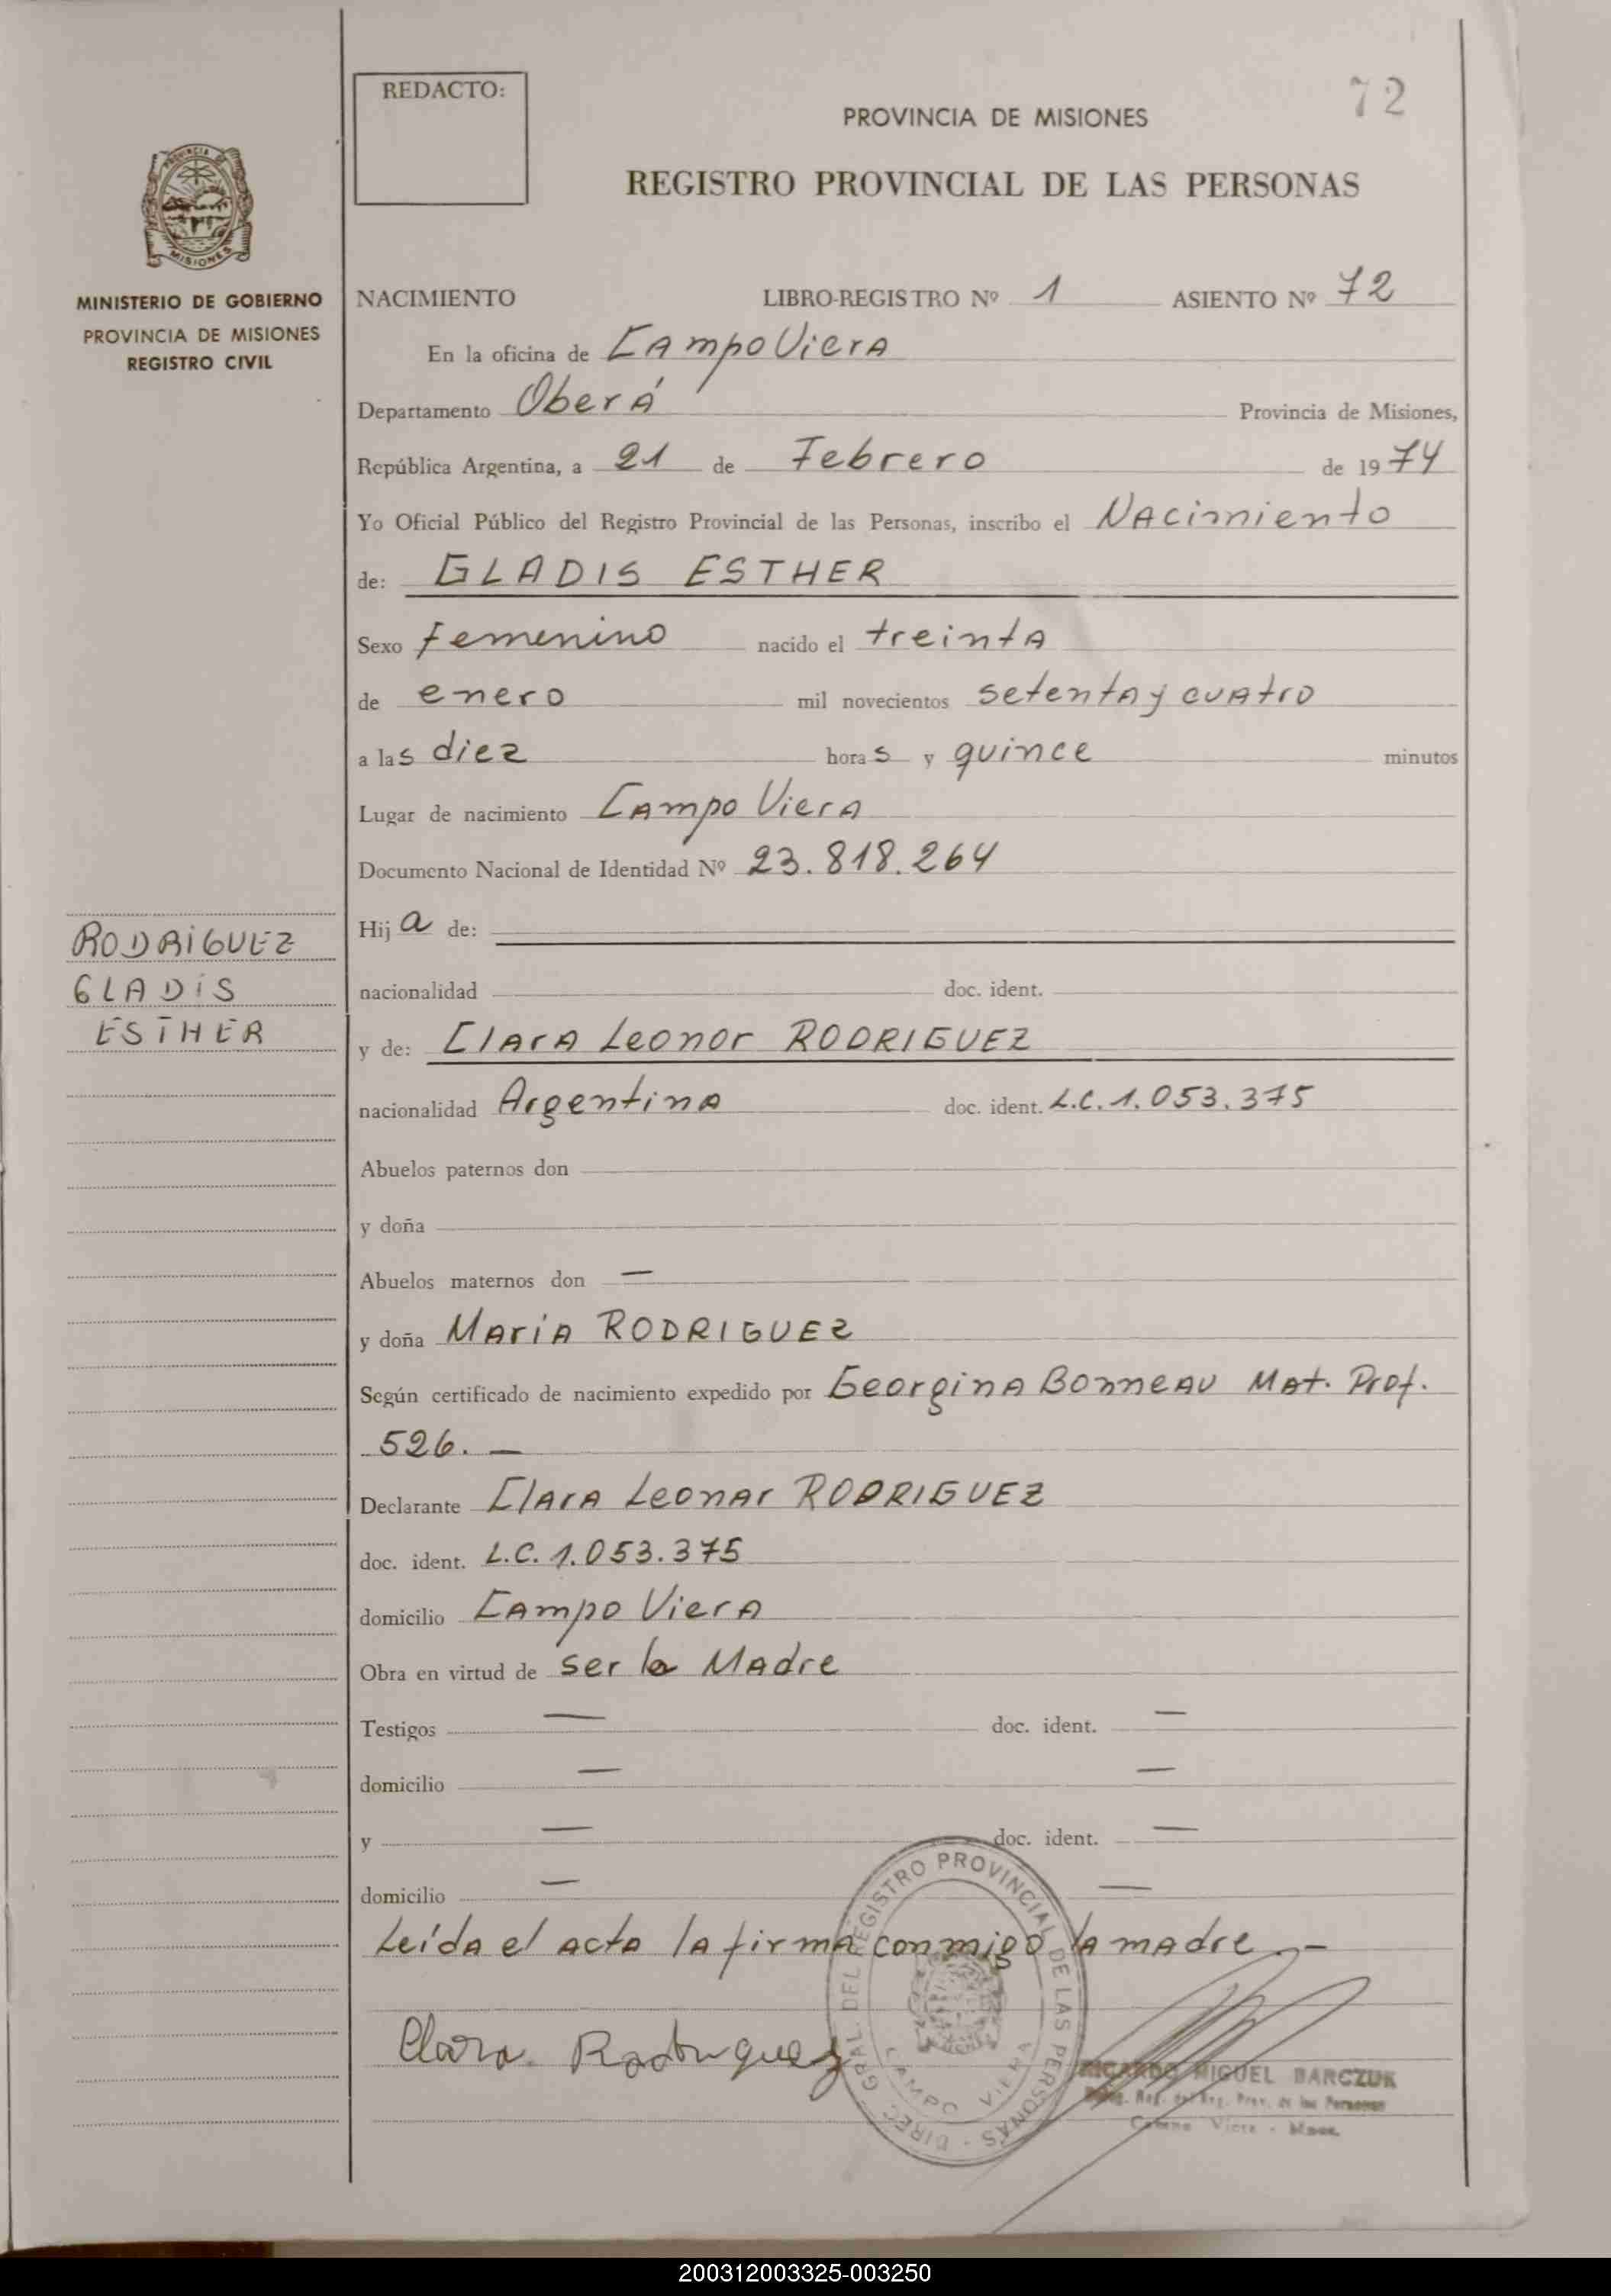 72
REDACTO:
PROVINCIA DE MISIONES
REGISTRO PROVINCIAL DE LAS PERSONAS
PROVINCIA DE
MISIONES
MINISTERIO DE GOBIERNO
PROVINCIA DE MISIONES
REGISTRO CIVIL
NACIMIENTO LIBRO-REGISTRO Nº 1 ASIENTO Nº 72
En la oficina de Campo Viera
Departamento Oberá Provincia de Misiones,
República Argentina, a 21 de Febrero de 1974
Yo Oficial Público del Registro Provincial de las Personas, inscribo el Nacimiento
de: GLADIS ESTHER
Sexo femenino nacido el treinta
de enero mil novecientos setenta y cuatro
a las diez horas y quince minutos
Lugar de nacimiento Campo Viera
Documento Nacional de Identidad Nº 23.818.264
Hija de:
nacionalidad doc. ident.
y de: Clara Leonor RODRIGUEZ
nacionalidad Argentina doc. ident. L.C. 1.053.375
RODRIGUEZ
GLADIS
ESTHER
Abuelos paternos don
y doña
Abuelos maternos don —
y doña Maria RODRIGUEZ
Según certificado de nacimiento expedido por Georgina Bonneau Mat. Prof.
526. —
Declarante Clara Leonar RODRIGUEZ
doc. ident. L.C. 1.053.375
domicilio Campo Viera
Obra en virtud de ser la Madre
Testigos — doc. ident. —
domicilio — —
y — doc. ident. —
domicilio — —
Leída el acta la firma conmigo la madre.-
Clara. Rodriguez
DIREC. GRAL. DEL REGISTRO PROVINCIAL DE LAS PERSONAS
CAMPO VIERA
RICARDO MIGUEL BARCZUK
Reg. Prov. de las Personas
Viera - Mnes.
200312003325-003250